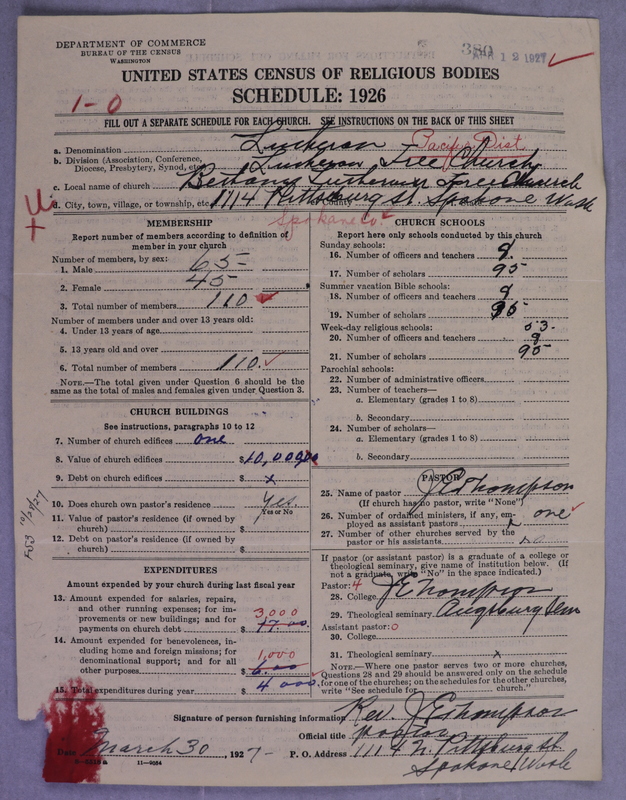 DEPARTMENT OF COMMERCE
BUREAU OF THE CENSUS
WASHINGTON
380
APR 12 1927
UNITED STATES CENSUS OF RELIGIOUS BODIES
SCHEDULE: 1926
1-0
FILL OUT A SEPARATE SCHEDULE FOR EACH CHURCH. SEE INSTRUCTIONS ON THE BACK OF THIS SHEET
a. Denomination Lutheran Pacific Dist
b. Division (Association, Conference, Diocese, Presbytery, Synod, etc.) Lutheran Free Church
c. Local name of church Bethany Lutheran Free Church
d. City, town, village, or township, etc. 1114 Pittsburg St. Spokane Wash
County Spokane Co.
MEMBERSHIP
Report number of members according to definition of member in your church
Number of members, by sex:
1. Male 65
2. Female 45
3. Total number of members 110
Number of members under and over 13 years old:
4. Under 13 years of age
5. 13 years old and over
6. Total number of members 110
NOTE.—The total given under Question 6 should be the same as the total of males and females given under Question 3.
CHURCH BUILDINGS
See instructions, paragraphs 10 to 12
7. Number of church edifices one
8. Value of church edifices $10,000.00
9. Debt on church edifices $ x
10. Does church own pastor's residence? Yes.
Yes or No
11. Value of pastor's residence (if owned by church) $
12. Debt on pastor's residence (if owned by church) $
EXPENDITURES
Amount expended by your church during last fiscal year
13. Amount expended for salaries, repairs, and other running expenses; for improvements or new buildings; and for payments on church debt $ 3,000
14. Amount expended for benevolences, including home and foreign missions; for denominational support; and for all other purposes $ 1,000
15. Total expenditures during year $ 4 000.
CHURCH SCHOOLS
Report here only schools conducted by this church
Sunday schools:
16. Number of officers and teachers 9.
17. Number of scholars 95
Summer vacation Bible schools:
18. Number of officers and teachers 9
19. Number of scholars 95
Week-day religious schools: 53.
20. Number of officers and teachers 9
21. Number of scholars 95
Parochial schools:
22. Number of administrative officers
23. Number of teachers—
a. Elementary (grades 1 to 8)
b. Secondary
24. Number of scholars—
a. Elementary (grades 1 to 8)
b. Secondary
PASTOR
25. Name of pastor J E Thompson
(If church has no pastor, write "None")
26. Number of ordained ministers, if any, employed as assistant pastors one
27. Number of other churches served by the pastor or his assistants
If pastor (or assistant pastor) is a graduate of a college or theological seminary, give name of institution below. (If not a graduate, write "No" in the space indicated.)
Pastor: 4
28. College J E Thompson
29. Theological seminary Augsburg Sem
Assistant pastor: 0
30. College
31. Theological seminary x
NOTE.—Where one pastor serves two or more churches, Questions 28 and 29 should be answered only on the schedule for one of the churches; on the schedules for the other churches, write "See schedule for church."
Signature of person furnishing information Rev. J E Thompson
Official title pastor
Date March 30, 1927
P. O. Address 1114 N. Pittsburg St.
Spokane Wash
8-5210a 11-9034
F.S.3 10/28/27